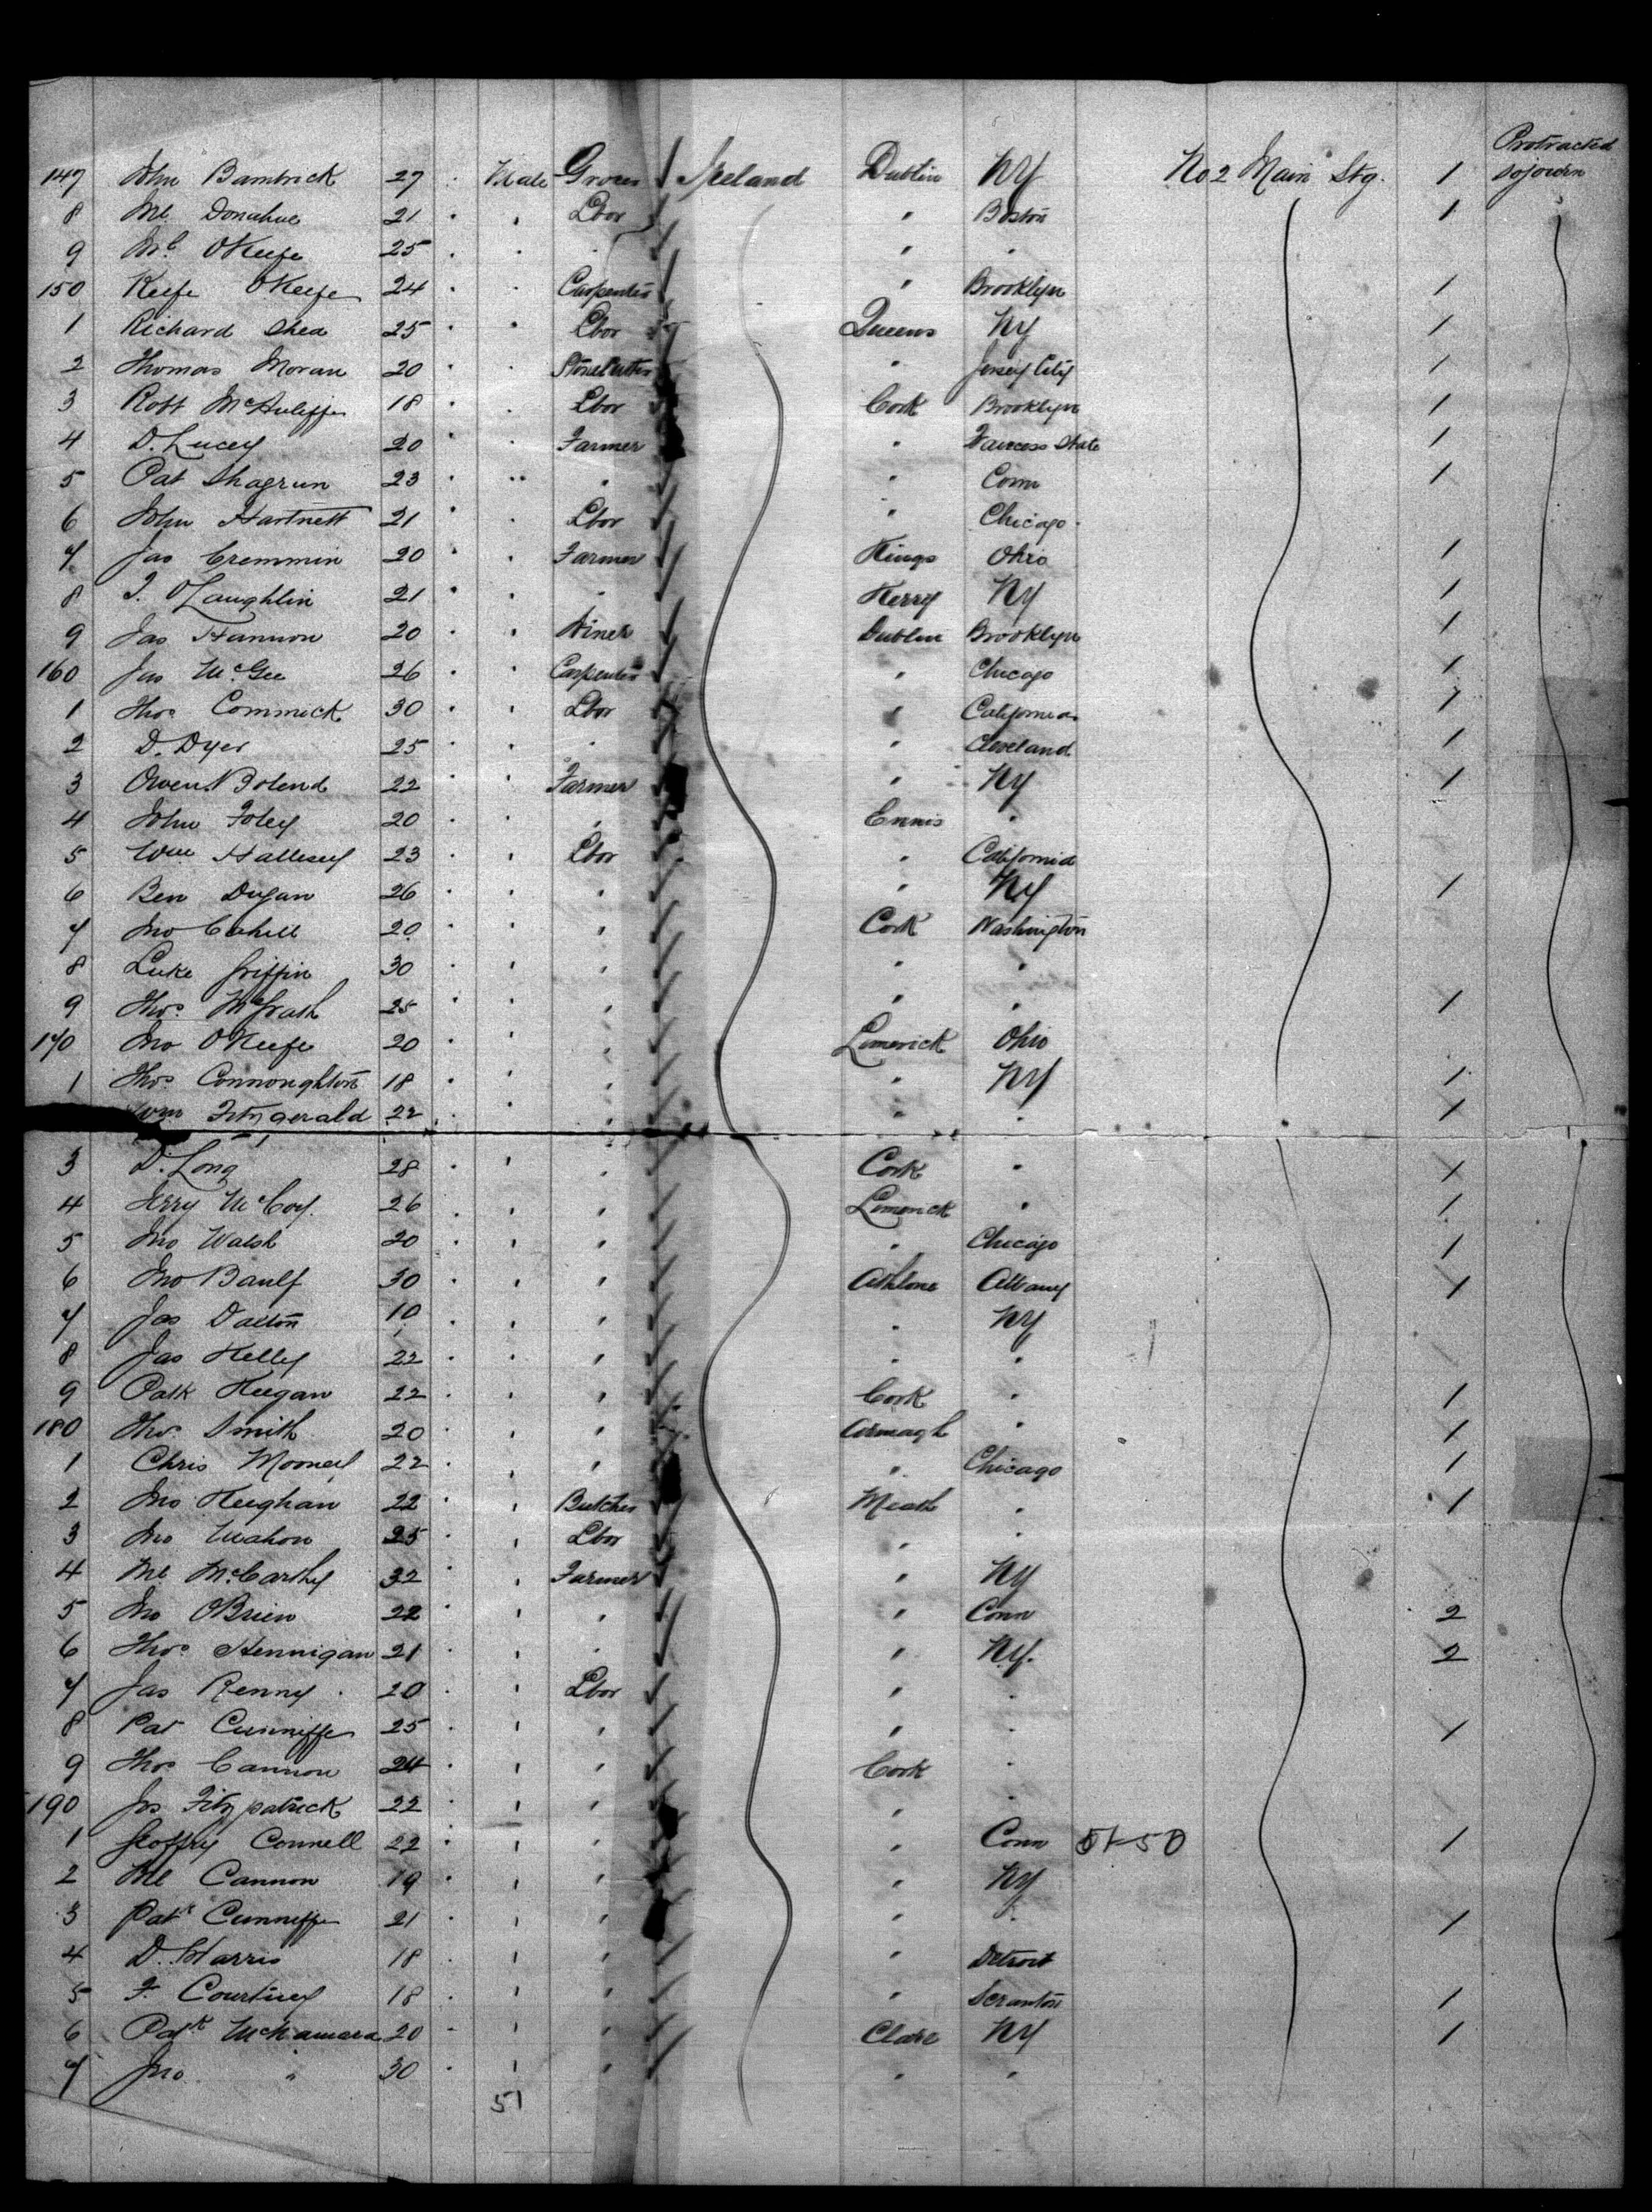 Protracted
147 John Bambrick 27 . Male Grocer Ireland Dublin NY No 2 Main Stg. 1 sojourn
8 Ml Donahue 21 . . Lbor " Boston 1
9 Ml O'Keefe 25 . . . " "
150 Keefe O'Keefe 24 . . Carpenter " Brooklyn 1
1 Richard Shea 25 . . Lbor Queens NY 1
2 Thomas Moran 20 . . Stonecutter " Jersey City 1
3 Robt McAuliffe 18 . . Lbor Cork Brooklyn 1
4 D. Lucey 20 . . Farmer " State 1
5 Pat Shagrun 23 . " . " Conn 1
6 John Hartnett 21 . . Lbor " Chicago
7 Jas Cremmin 20 . . Farmer Kings Ohio 1
8 J. O'Laughlin 21 . . . Kerry NY 1
9 Jas Hannon 20 . . Dublin Brooklyn 1
160 Jas McGee 26 . . Carpenter " Chicago 1
1 Thos Commick 30 . . Lbor " California 1
2 D. Dyer 25 . . . " Cleveland 1
3 Owen Bolend 22 . . Farmer " NY 1
4 John Foley 20 . . . Ennis "
5 Wm Hallesey 23 . . Lbor " California
6 Ben Dugan 26 . . " " NY 1
7 Jno Cahill 20 . . " Cork Washington
8 Luke Griffin 30 . . " " "
9 Thos McGrath 25 . . " " " 1
170 Jno O'Keefe 20 . . " Limerick Ohio
1 Thos Connoughton 18 . . " " NY 1
Wm Fitzgerald 22 . . " " " 1
3 D. Long 28 . . " Cork " 1
4 Jerry McCoy. 26 . . " Limerick " 1
5 Jno Walsh 20 . . " " Chicago 1
6 Jno Baulf 30 . . " Athlone Albany 1
7 Jas Dalton 10 . . " " NY
8 Jas Kelly 22 . . " " "
9 Patk Keegan 22 . . " Cork " 1
180 Thos Smith 20 . . " Armagh " 1
1 Chris Mooney 22 . . " " Chicago 1
2 Jno Keeghan 22 . . Butcher Meath " 1
3 Jno Mahon 25 . . Lbor " "
4 Ml McCarthy 32 . . Farmer " NY
5 Jno O'Brien 22 . . " " Conn 2
6 Thos Hennigan 21 . . " " NY. 2
7 Jas Renny 20 . . Lbor " "
8 Pat Cunniffe 25 . . " " " 1
9 Thos Cannon 24 . . " Cork "
190 Jas Fitzpatrick 22 . . " " "
1 Geoffry Connell 22 . . " " Conn 51-50 1
2 Ml Cannon 19 . . " " NY
3 Patk Cunniffe 21 . . " " " 1
4 D. Harris 18 . . " " Detroit
5 F. Courtney 18 . . " " Scranton 1
6 Patk McNamara 20 . . " Clare NY 1
7 Jno " 30 . . " " "
51